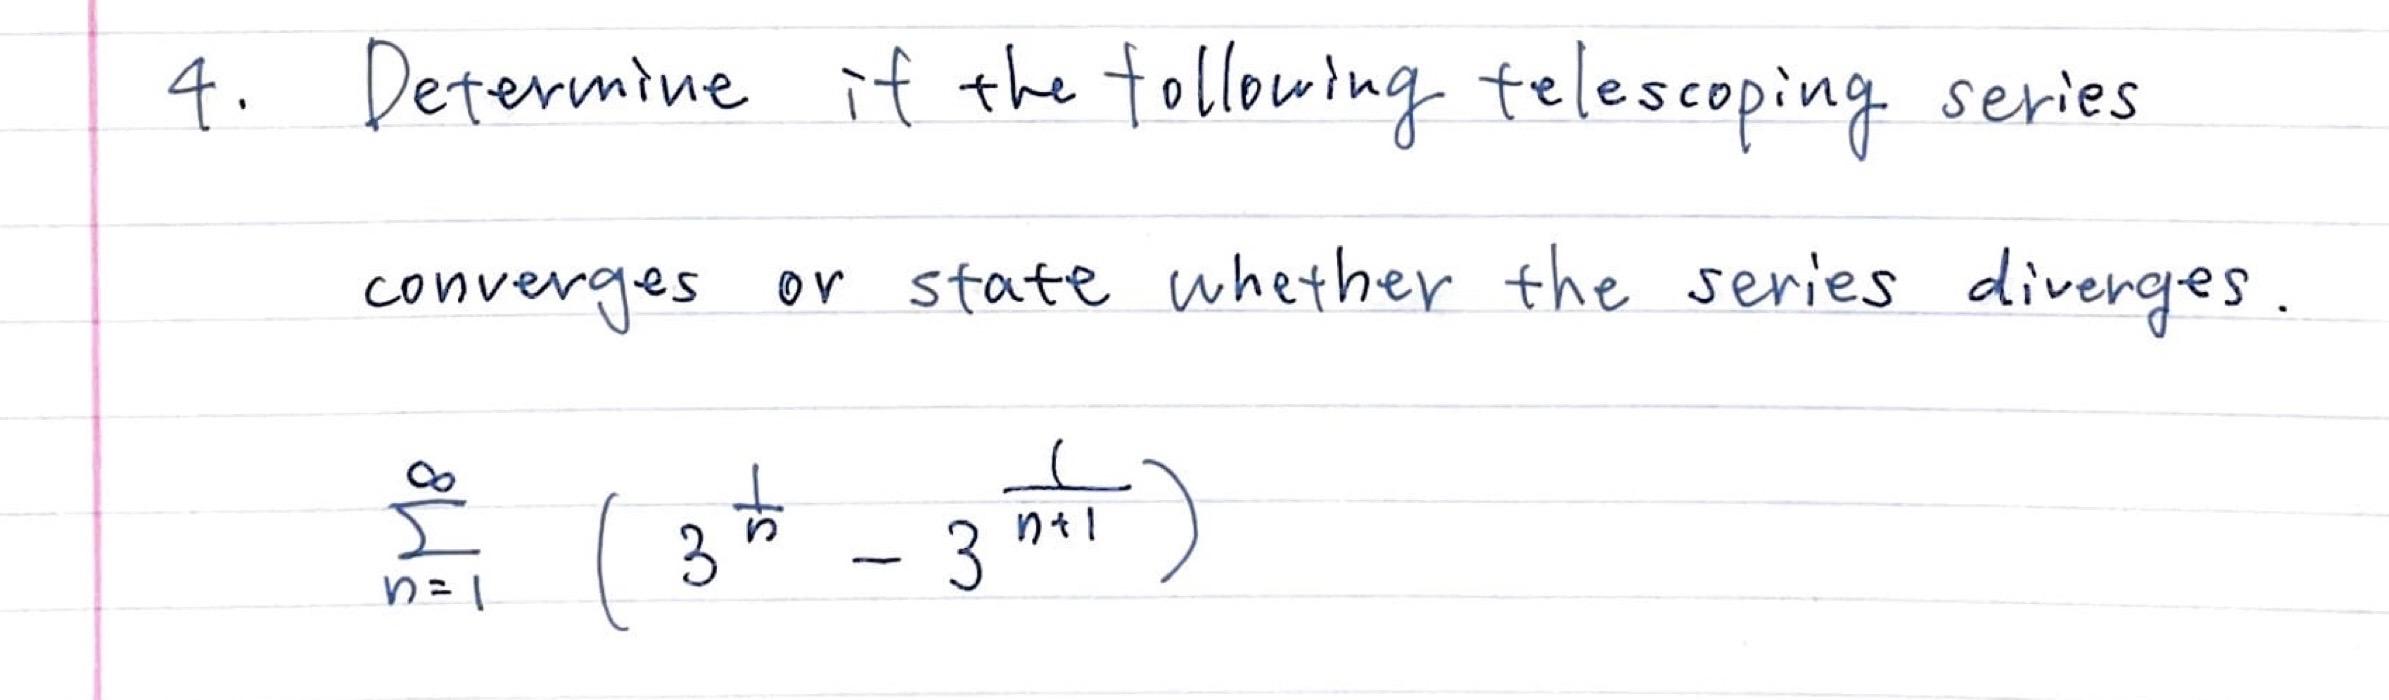 4. Determine if the following telescoping series
converges or state whether the series diverges.
∞
∑ (3^{1/n} - 3^{1/(n+1)})
n=1